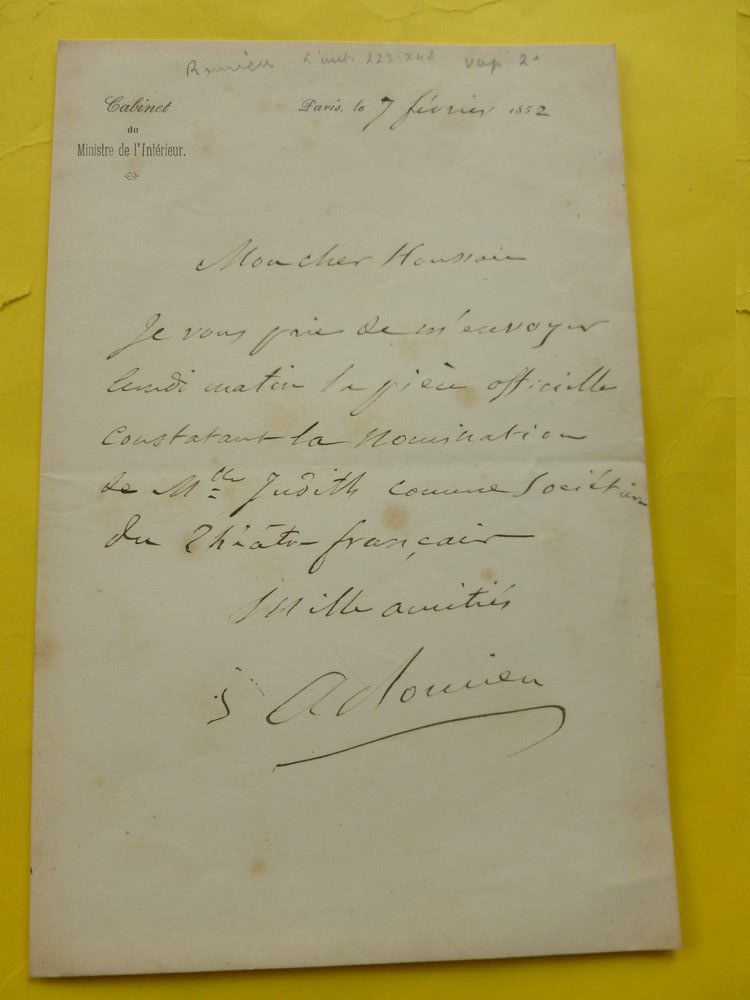 Romieu L'aut. 223.248
Cabinet
du
Ministre de l'Intérieur.
Paris, le 7 février 1852
Mon cher Houssaie
Je vous prie de m'envoyer
lundi matin la pièce officielle
constatant la nomination
de Mlle Judith comme Sociétaire
du Théâtre français
Mille amitiés
A Romieu